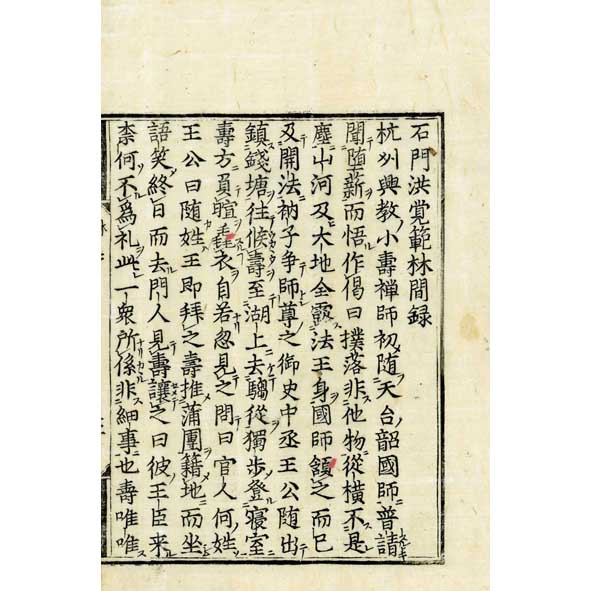 石門洪覚範林間録
杭州興教小壽禅師初随天台韶國師普請
聞墮薪而悟作偈曰撲落非他物從横不是
塵山河及大地全露法王身國師頷之而已
及開法衲子争師尊之御史中丞王公随出
鎮錢塘往候壽至湖上去騶從獨歩登寝室
壽方負暄毳衣自若忽見之問曰官人何姓
王公曰随姓王即拜之壽推蒲團籍地而坐
語笑終日而去門人見壽讓之曰彼王臣来
柰何不爲礼此一衆所係非細事也壽唯唯